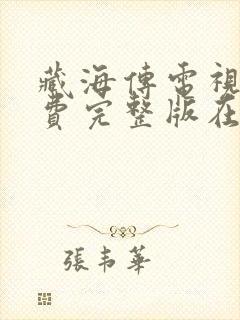 藏海傳電視
費完整版在
張韦華